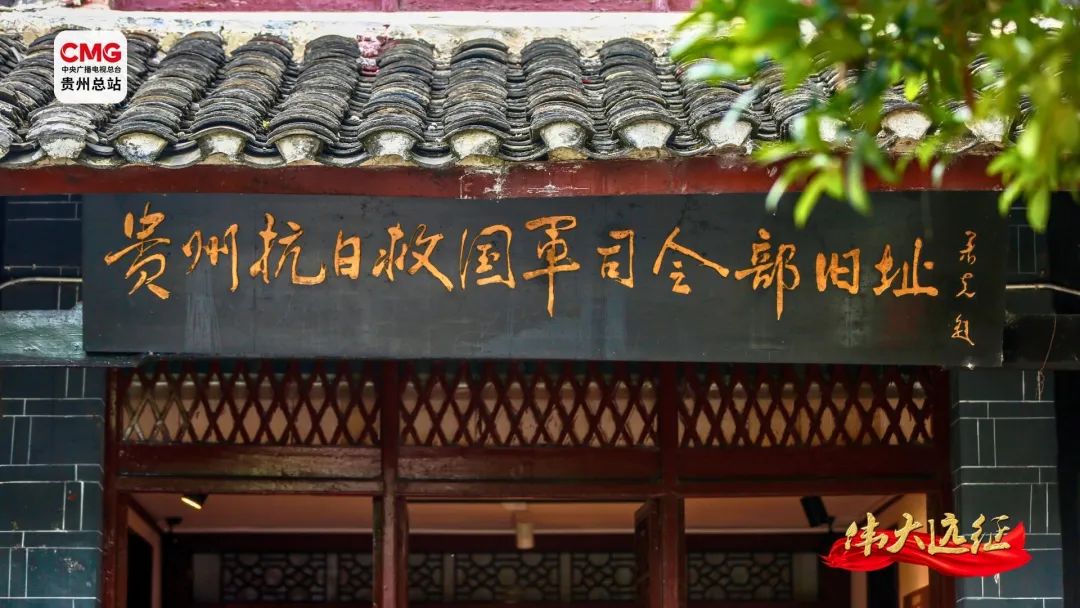 CMG
中央广播电视总台
贵州总站
贵州抗日救国軍司令部旧址
克题
伟大远征